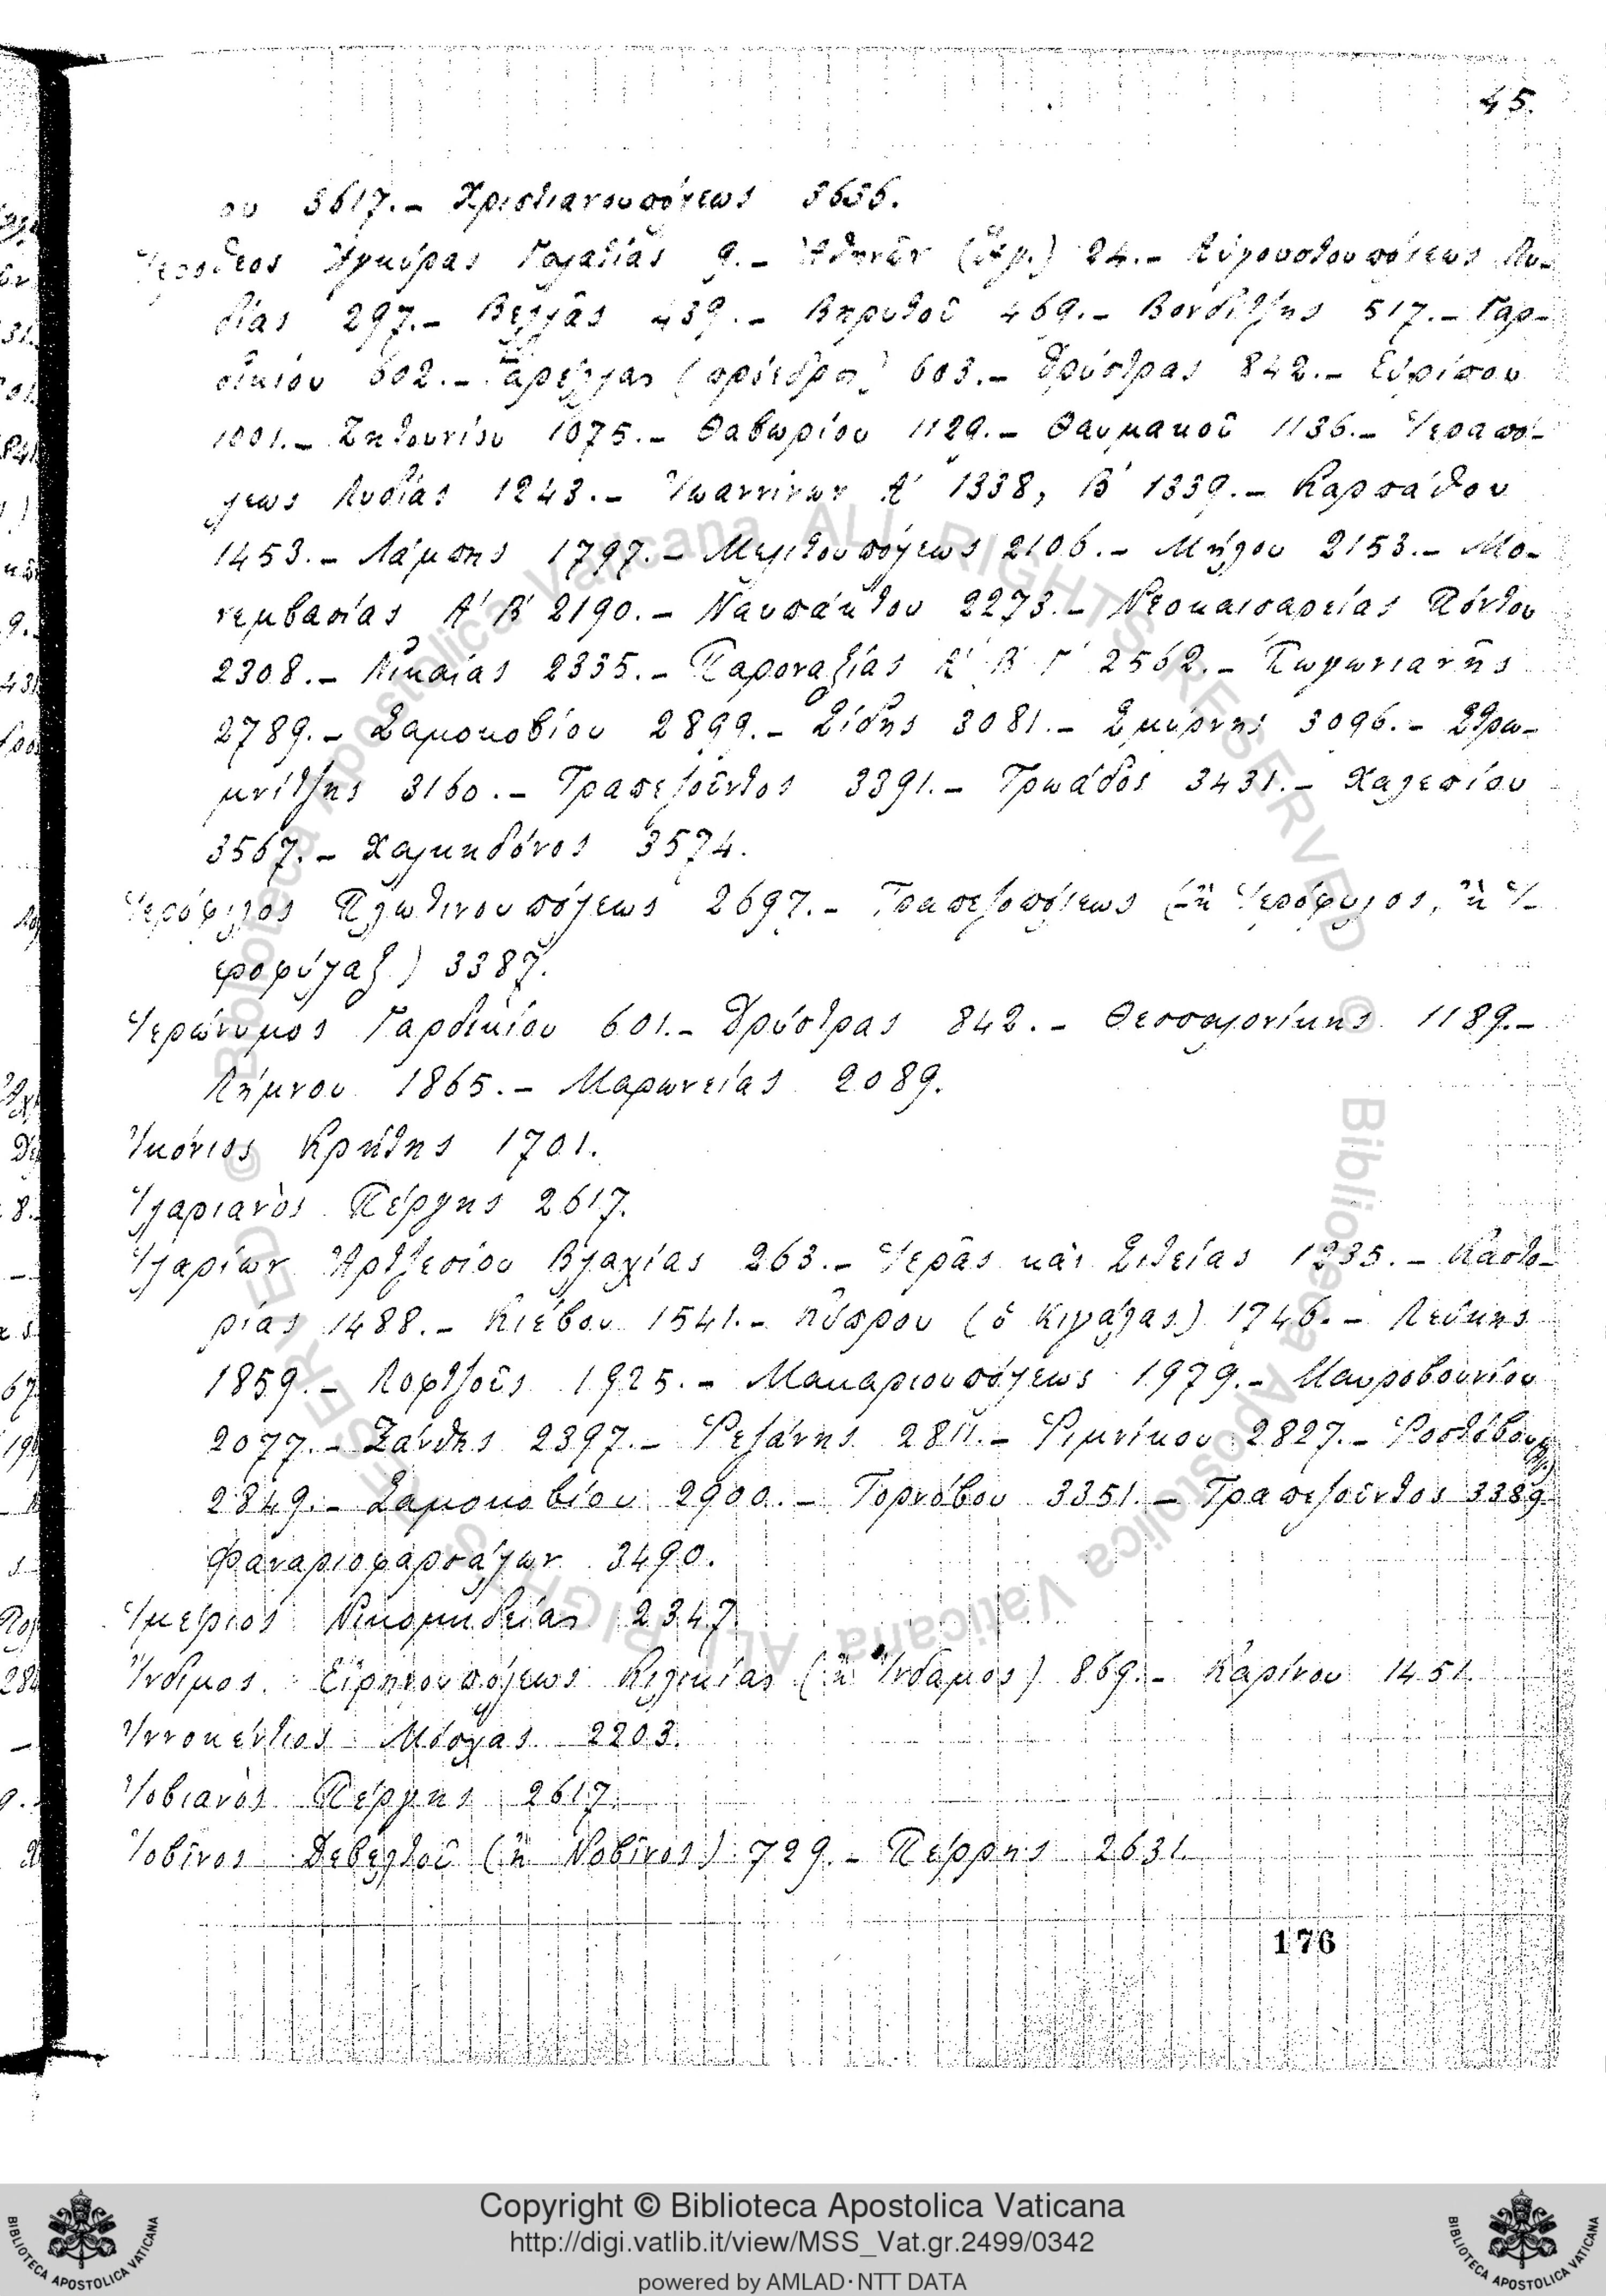 45.
ου 3617.– Χριστιανουπόλεως 3636.
Ἱερόθεος Ἀγκύρας Γαλατίας 9.– Ἀθηνῶν 24.– Αὐγουστουπόλεως Λυ-
δίας 297.– Βελλᾶς 439.– Βηρυτοῦ 469.– Βονδίτζης 517.– Γαρ-
δικίου 602.– Γαρέλλας (πρόεδρος) 603.– Δρύστρας 842.– Εὐρίπου
1001.– Ζητουνίου 1075.– Θαβωρίου 1129.– Θαυμακοῦ 1136.– Ἱεραπό-
λεως Λυδίας 1243.– Ἰωαννίνων Α΄ 1338, Β΄ 1339.– Καρπάθου
1453.– Λάμπης 1797.– Μελιτουπόλεως 2106.– Μήλου 2153.– Μο-
νεμβασίας Α΄ Β΄ 2190.– Ναυπάκτου 2273.– Νεοκαισαρείας Πόντου
2308.– Νικαίας 2335.– Παροναξίας Α΄ Β΄ Γ΄ 2562.– Πωγωνιανῆς
2789.– Σαμοκοβίου 2899.– Σίδης 3081.– Σμύρνης 3096.– Στρω-
μνίτζης 3160.– Τραπεζοῦντος 3391.– Τρωάδος 3431.– Χαλεπίου
3567.– Χαλκηδόνος 3574.
Ἱερόφιλος Πλωτινουπόλεως 2697.– Τραπεζοπόλεως (ἢ Ἱερόφυλος, ἢ Ἱ-
εροφύλαξ) 3387.
Ἱερώνυμος Γαρδικίου 601.– Δρύστρας 842.– Θεσσαλονίκης 1189.–
Λήμνου 1865.– Μαρωνείας 2089.
Ἰκόνιος Κρήτης 1701.
Ἱλαριανὸς Πέργης 2617.
Ἱλαρίων Ἀρτζεσίου Βλαχίας 263.– Ἱερᾶς καὶ Σιτείας 1235.– Καστο-
ρίας 1488.– Κιέβου 1541.– Κύπρου (ὁ Κιγάλας) 1746.– Λεύκης
1859.– Λοφτζοῦς 1925.– Μακαριουπόλεως 1979.– Μαυροβουνίου
2077.– Ξάνθης 2397.– Ῥεζάνης 2811.– Ῥιμνίκου 2827.– Ῥοστόβου
2849.– Σαμοκοβίου 2900.– Τορνόβου 3351.– Τραπεζοῦντος 3389
Φαναριοφαρσάλων 3490.
Ἱμέριος Νικομηδείας 2347.
Ἴνδιμος Εἰρηνουπόλεως Κιλικίας (ἢ Ἴνδαμος) 869.– Καρίνου 1451.
Ἰννοκέντιος Μόσχας 2203.
Ἰοβιανὸς Πέργης 2617.
Ἰοβῖνος Δεβελτοῦ (ἢ Νοβῖνος) 729.– Πέρρης 2631.
176
Biblioteca Apostolica Vaticana ALL RIGHTS RESERVED ©
Copyright © Biblioteca Apostolica Vaticana
http://digi.vatlib.it/view/MSS_Vat.gr.2499/0342
powered by AMLAD·NTT DATA
BIBLIOTECA APOSTOLICA VATICANA
BIBLIOTECA APOSTOLICA VATICANA